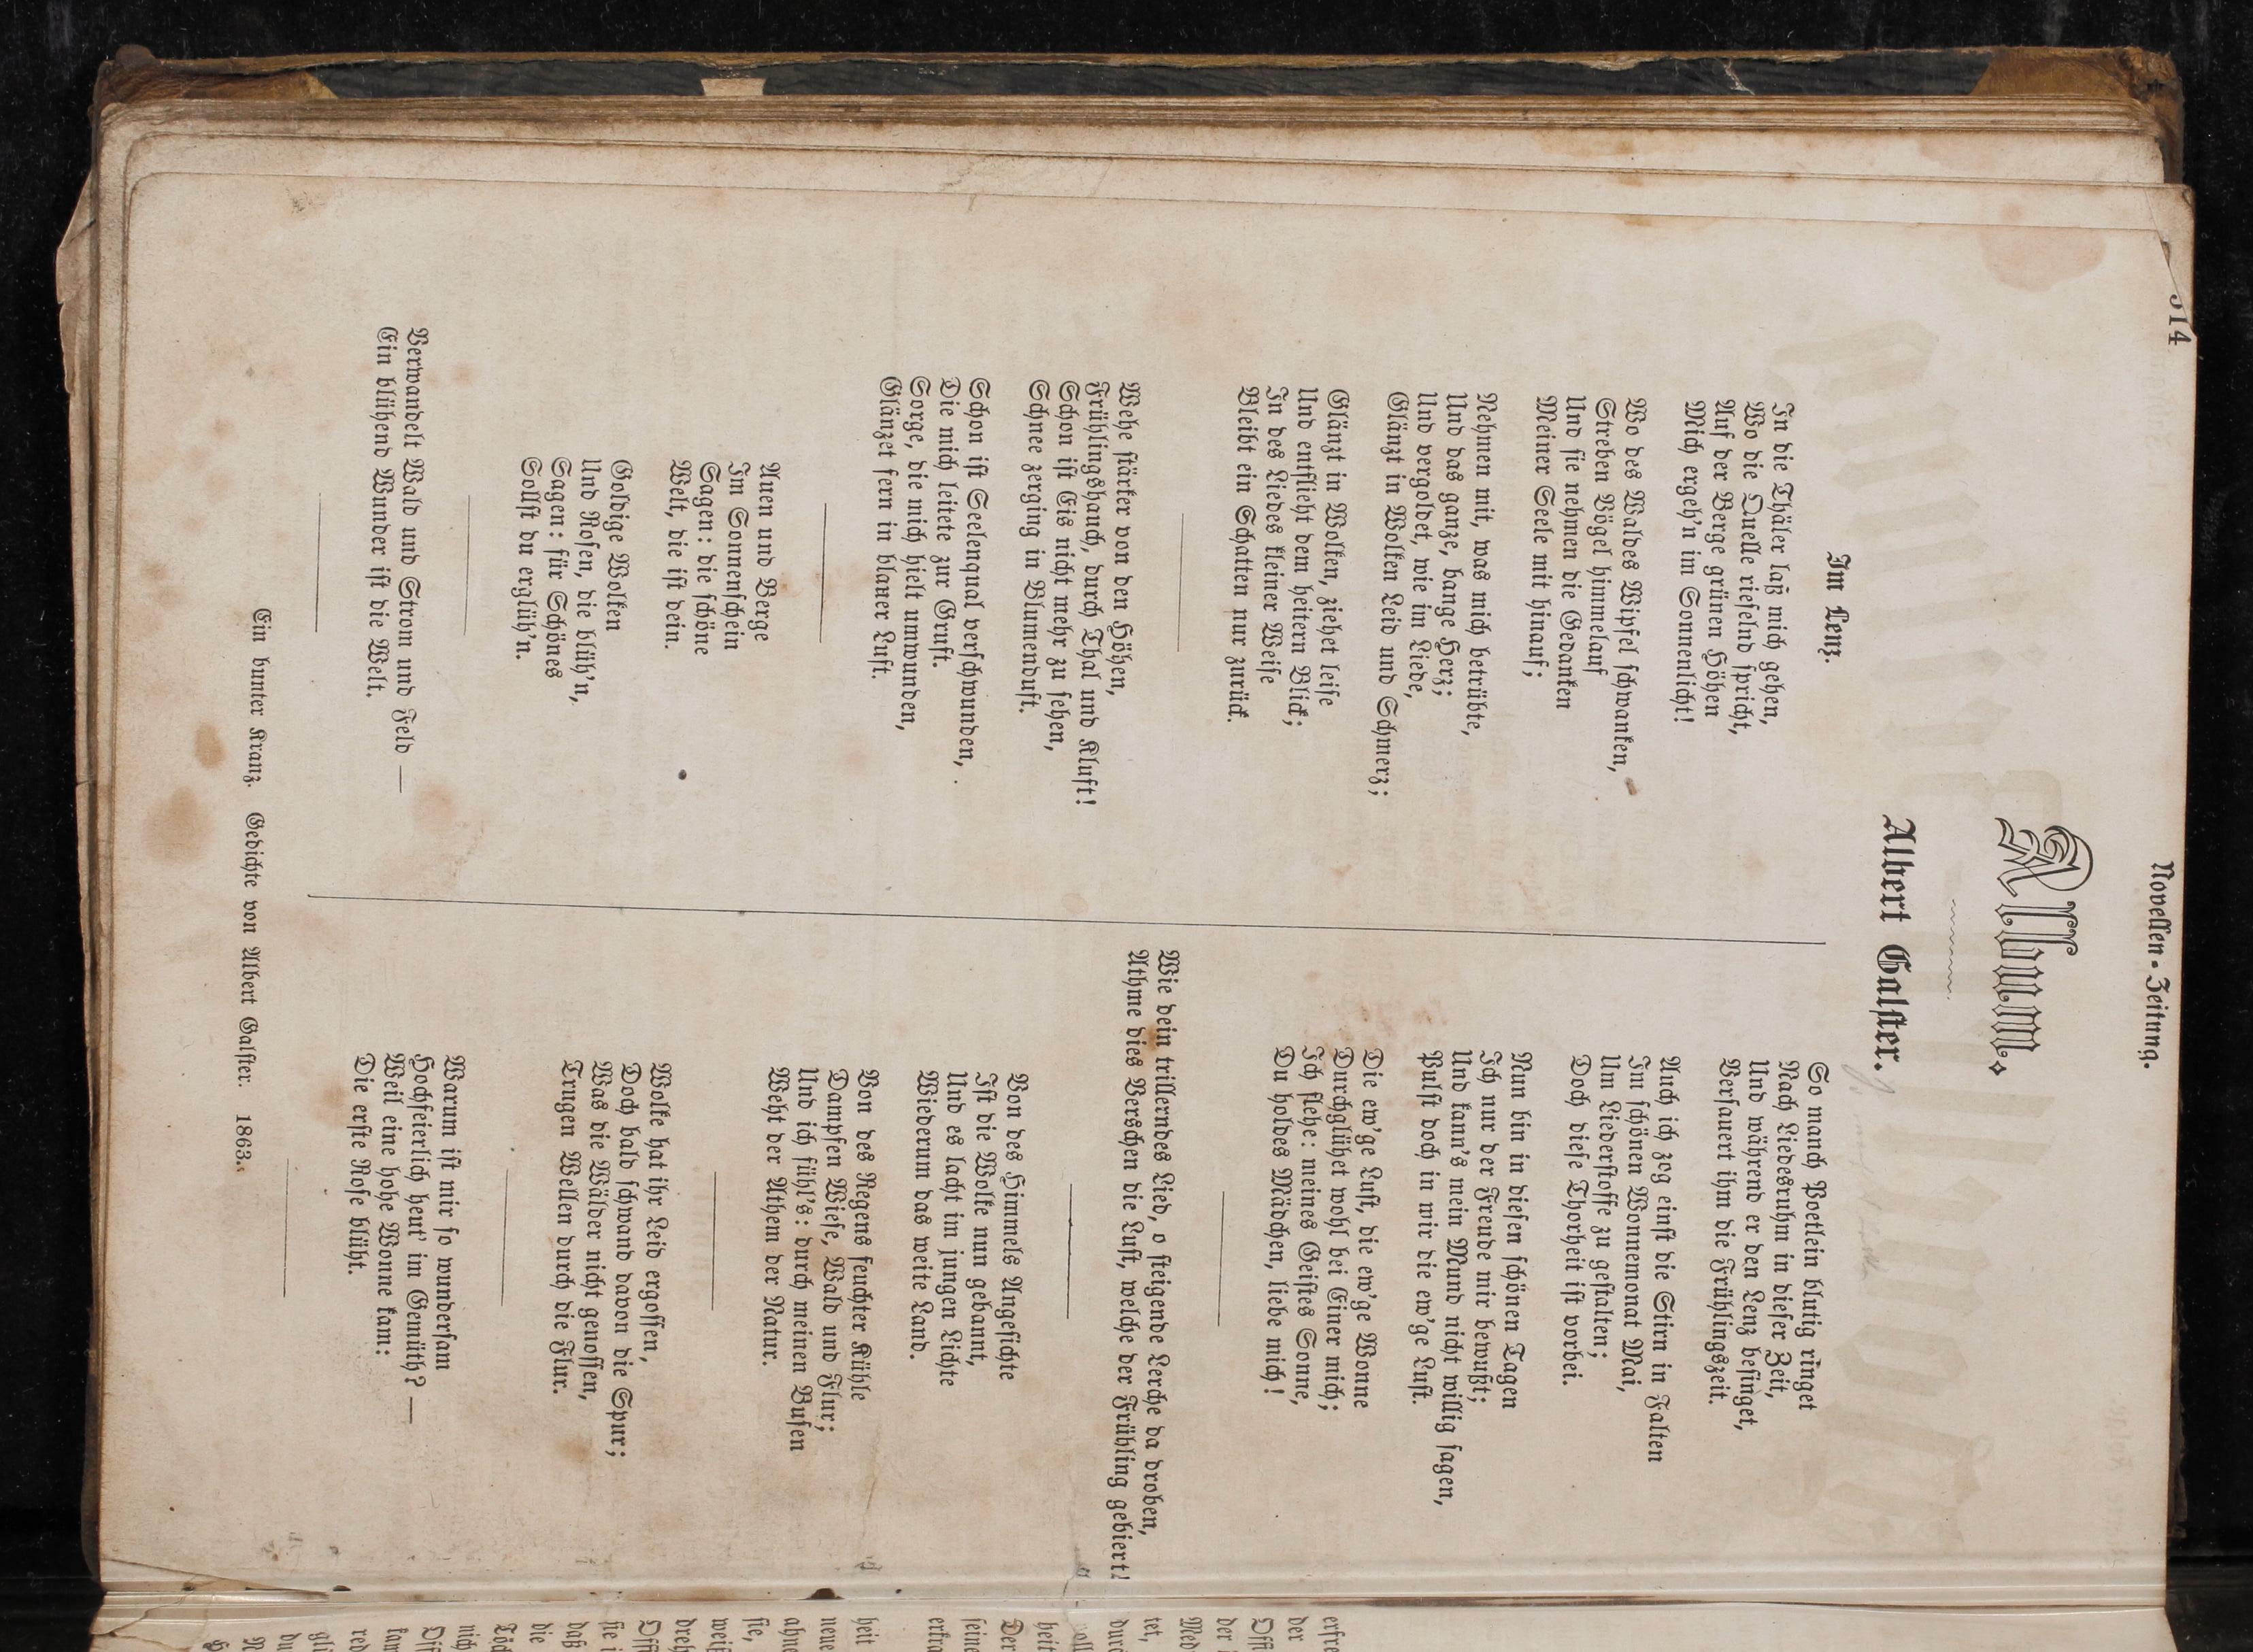 514
Novellen-Zeitung.
Album.
Albert Galster.
Im Lenz.
In die Thäler laß mich gehen,
Wo die Quelle rieselnd spricht,
Auf der Berge grünen Höhen
Mich ergeh'n im Sonnenlicht!
Wo des Waldes Wipfel schwanken,
Streben Vögel himmelauf
Und sie nehmen die Gedanken
Meiner Seele mit hinauf;
Nehmen mit, was mich betrübte,
Und das ganze, bange Herz;
Und vergoldet, wie im Liede,
Glänzt in Wolken Leid und Schmerz;
Glänzt in Wolken, ziehet leise
Und entflieht dem heitern Blick;
In des Liedes kleiner Weise
Bleibt ein Schatten nur zurück.
Wehe stärker von den Höhen,
Frühlingshauch, durch Thal und Kluft!
Schon ist Eis nicht mehr zu sehen,
Schnee zerging in Blumenduft.
Schon ist Seelenqual verschwunden,
Die mich leitete zur Gruft.
Sorge, die mich hielt umwunden,
Glänzet fern in blauer Luft.
Auen und Berge
Im Sonnenschein
Sagen: die schöne
Welt, die ist dein.
Goldige Wolken
Und Rosen, die blüh'n,
Sagen: für Schönes
Sollst du erglüh'n.
Verwandelt Wald und Strom und Feld —
Ein blühend Wunder ist die Welt.
So manch Poetlein blutig ringet
Nach Liedesruhm in dieser Zeit,
Und während er den Lenz besinget,
Versauert ihm die Frühlingszeit.
Auch ich zog einst die Stirn in Falten
Im schönen Wonnemonat Mai,
Um Liederstoffe zu gestalten;
Doch diese Thorheit ist vorbei.
Nun bin in diesen schönen Tagen
Ich nur der Freude mir bewußt;
Und kann's mein Mund nicht willig sagen,
Pulst doch in mir die ew'ge Lust.
Die ew'ge Lust, die ew'ge Wonne
Durchglühet wohl bei Einer mich;
Ich flehe: meines Geistes Sonne,
Du holdes Mädchen, liebe mich!
Wie dein trillerndes Lied, o steigende Lerche da droben,
Athme dies Verschen die Lust, welche der Frühling gebiert!
Von des Himmels Angesichte
Ist die Wolke nun gebannt,
Und es lacht im jungen Lichte
Wiederum das weite Land.
Von des Regens feuchter Kühle
Dampfen Wiese, Wald und Flur;
Und ich fühl's: durch meinen Busen
Weht der Athem der Natur.
Wolke hat ihr Leid ergossen,
Doch bald schwand davon die Spur;
Was die Wälder nicht genossen,
Trugen Wellen durch die Flur.
Warum ist mir so wundersam
Hochfeierlich heut' im Gemüth? —
Weil eine hohe Wonne kam:
Die erste Rose blüht.
Ein bunter Kranz. Gedichte von Albert Galster. 1863.